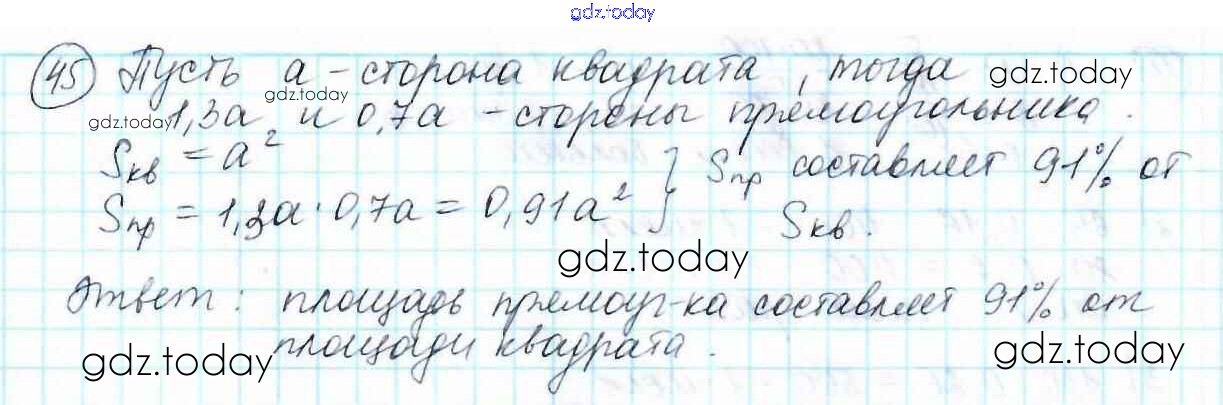 gdz.today
45 Пусть a – сторона квадрата, тогда
gdz.today
gdz.today
gdz.today 1,3a и 0,7a – стороны прямоугольника.
Sкв = a² } Sпр составляет 91% от
Sпр = 1,3a · 0,7a = 0,91a² } Sкв.
gdz.today
Ответ: площадь прямоуг-ка составляет 91% от
площади квадрата.
gdz.today
gdz.today